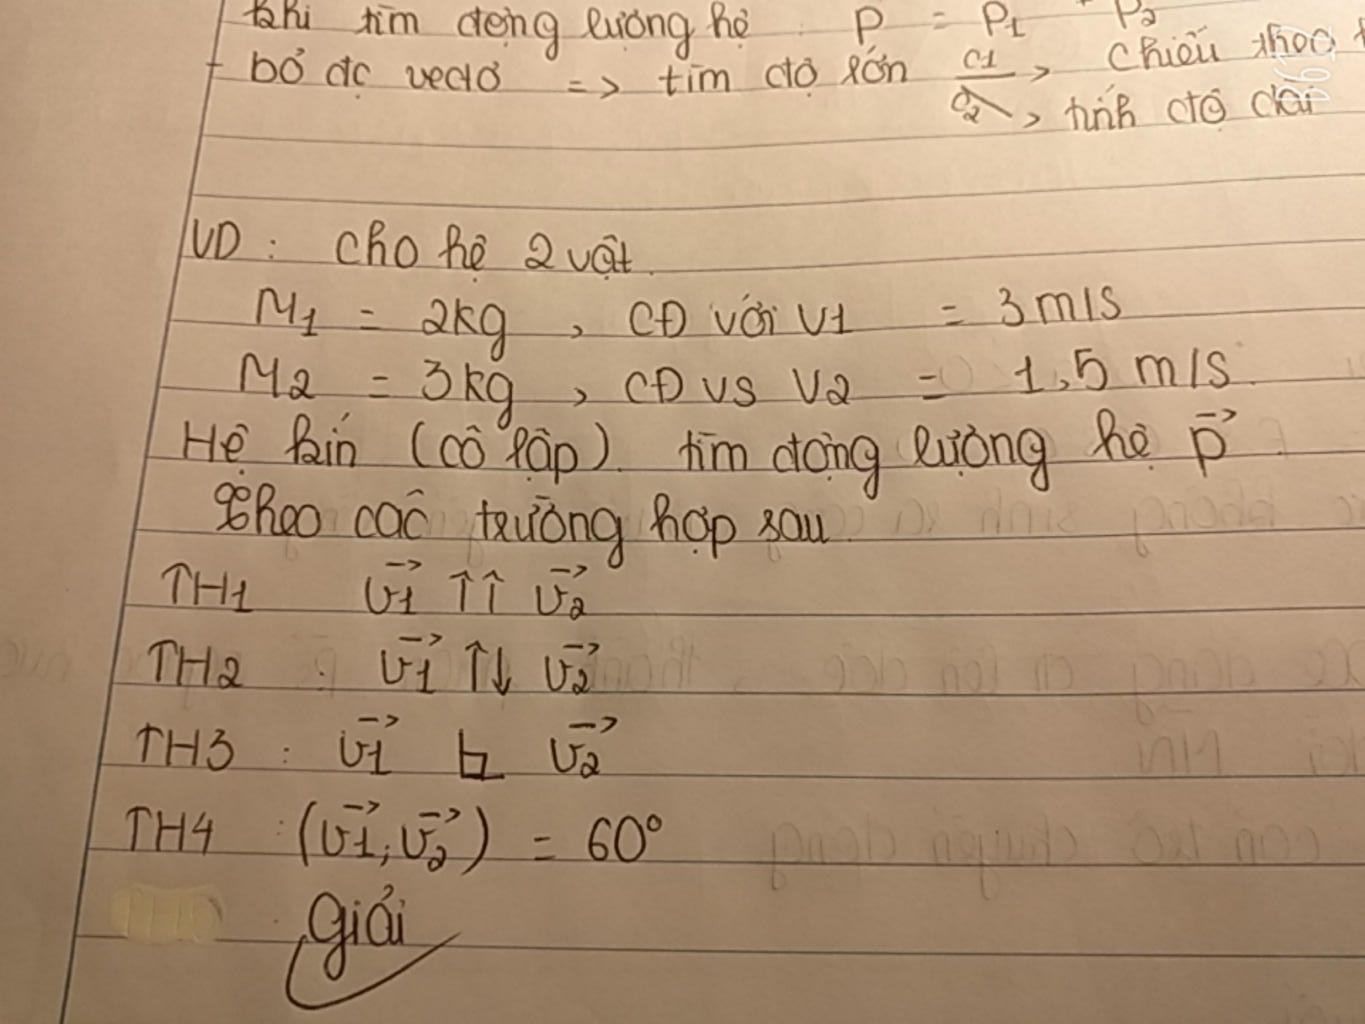 khi tìm động lượng hệ : P = P1 + P2
+ bỏ đc vectơ => tìm độ lớn C1 -> Chiếu theo
C2 -> tính độ dài
VD : Cho hệ 2 vật.
M1 = 2kg , CĐ với V1 = 3 m/s
M2 = 3kg , CĐ vs V2 = 1,5 m/s.
Hệ kín (cô lập). tìm động lượng hệ p⃗.
theo các trường hợp sau
TH1 v1⃗ ↑↑ v2⃗
TH2 : v1⃗ ↑↓ v2⃗
TH3 : v1⃗ ⊥ v2⃗
TH4 : (v1⃗; v2⃗) = 60°
Giải